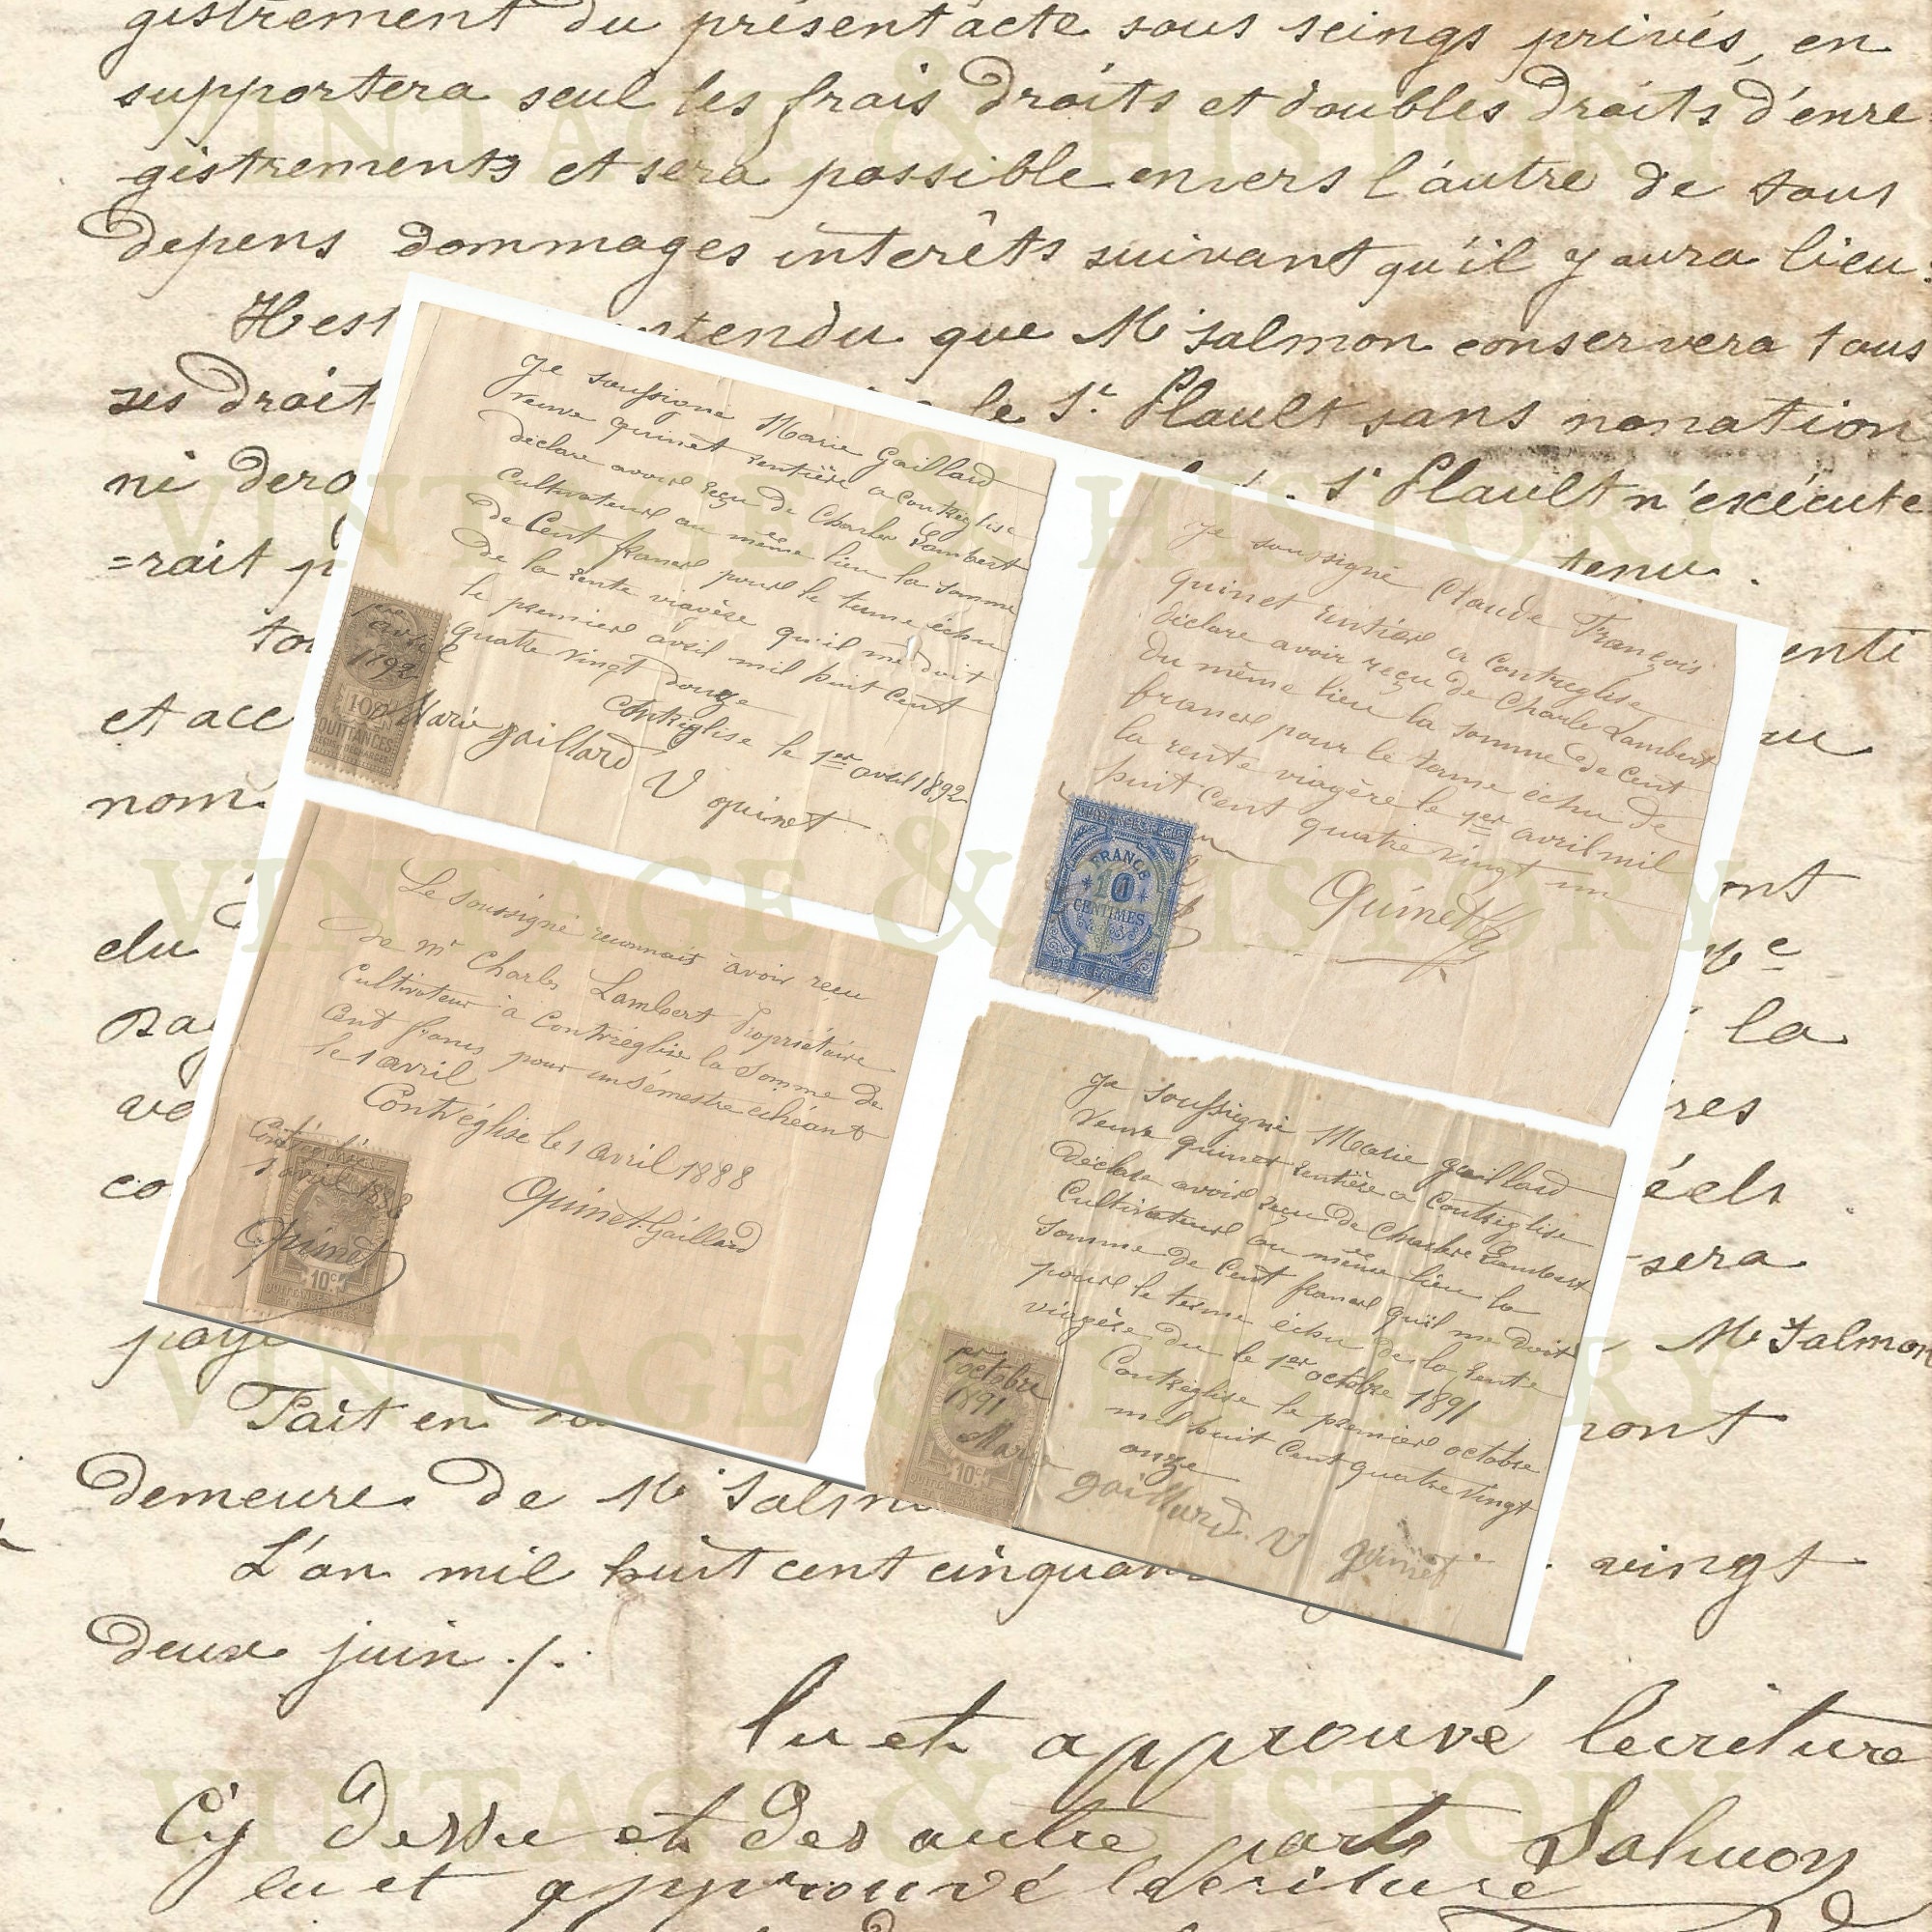 gistrement du présent acte sous seings privés, en
supportera seul les frais droits et doubles droits d'enre
gistrements et sera possible envers l'autre de tous
depens dommages interêts suivant qu'il y aura lieu.
Il est entendu que Mr Salmon conservera tous
ses droits le Sr. Plault sans novation
ni déro Sr Plault n'exécute
=rait p tenu.
et acc
nom
elu
la
sera
paye Mr Salmon
Fait en
demeure de Mr Salmo
L'an mil huit cent cinquan vingt
deux juin ./.
lu et approuvé lecriture
Cy dessu et des autre parts Salmon
lu et approuvé lecriture
Je soussigné Marie Gaillard
veuve quinet rentière a Contréglise
déclare avoir reçu de Charles Lambert
Cultivateur au même lieu la somme
de Cent francs pour le terme échu
de la rente viagère qu'il me doit
le premier avril mil huit Cent
quatre vingt douze
Contréglise le 1er avril 1892
Marie gaillard V quinet
1er
avril
1892
10c
QUITTANCES
Je soussigné Claude François
quinet rentier a Contreglise
déclare avoir reçu de Charle Lambert
du même lieu la somme de Cent
francs pour le terme échu de
la rente viagère le 1er avril mil
huit Cent quatre vingt un
Quinet
FRANCE
10
CENTIMES
Le Soussigné reconnais avoir reçu
de mr Charles Lambert Propriétaire
Cultivateur à Contréglise la Somme de
Cent francs pour un Sémestre echéant
le 1 avril
Contréglise le 1 Avril 1888
Quinet-Gaillard
1 avril 1888
Quinet
10c
Je soussigné Marie gaillard
Veuve quinet rentière a Contréglise
déclare avoir reçu de Charles Lambert
Cultivateur au même lieu la
somme de Cent francs qu'il me doit
pour le terme échu de la rente
viagère du le 1er octobre 1891
Contréglise le premier octobre
mil huit Cent quatre vingt
onze
gaillard. V quinet
1er
octobre
1891
Marie
10c
VINTAGE & HISTORY
VINTAGE & HISTORY
VINTAGE & HISTORY
VINTAGE & HISTORY
VINTAGE & HISTORY